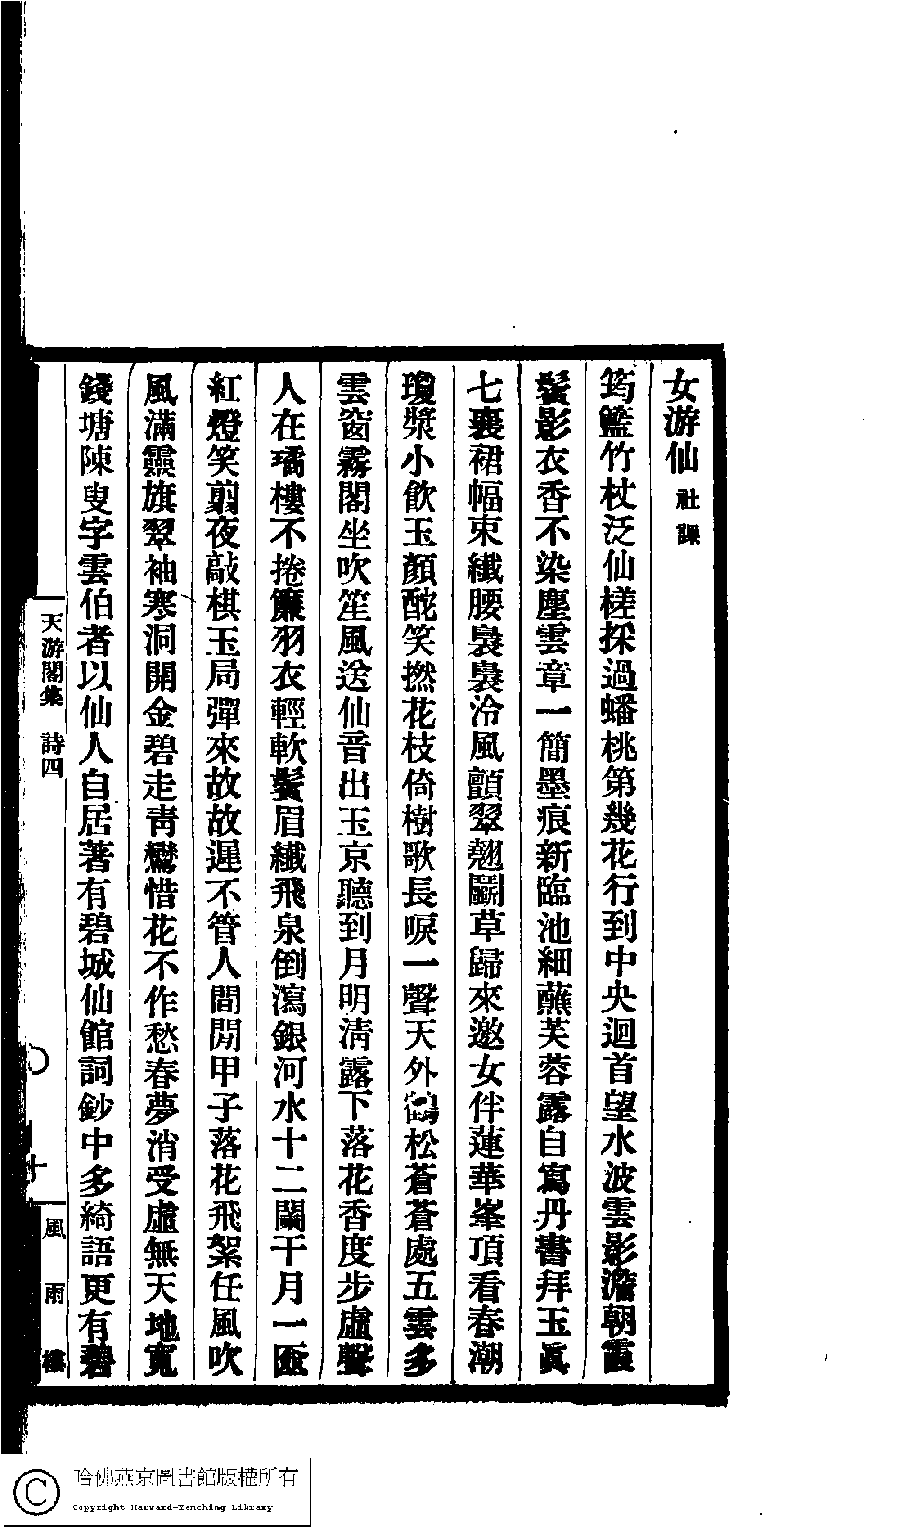 女游仙 社課
筠籃竹杖泛仙槎採過蟠桃第幾花行到中央迴首望水波雲影澹朝霞
鬢影衣香不染塵雲章一簡墨痕新臨池細蘸芙蓉露自寫丹書拜玉眞
七裛裙幅束纖腰裊裊泠風顫翠翹鬭草歸來邀女伴蓮華峯頂看春潮
瓊漿小飲玉顏酡笑撚花枝倚樹歌長唳一聲天外鶴松蒼蒼處五雲多
雲窗霧閣坐吹笙風送仙音出玉京聽到月明淸露下落花香度步虛聲
人在璚樓不捲簾羽衣輕軟鬢眉纖飛泉倒瀉銀河水十二闌干月一匳
紅燈笑剪夜敲棋玉局彈來故故遲不管人間閒甲子落花飛絮任風吹
風滿靈旗翠袖寒洞開金碧走靑鸞惜花不作愁春夢消受虛無天地寬
錢塘陳叟字雲伯者以仙人自居著有碧城仙館詞鈔中多綺語更有碧
天游閣集 詩四
十
風雨樓
哈佛燕京圖書館版權所有
Copyright Harvard-Yenching Library